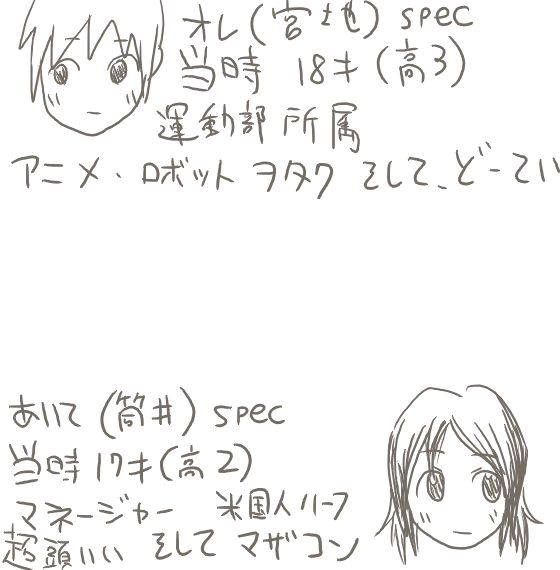 オレ(宮地) spec
当時 18才(高3)
運動部所属
アニメ・ロボットヲタク そして、どーてい
あいて(筒井) spec
当時17才(高2)
マネージャー 米国人ハーフ
超頭いい そして マザコン